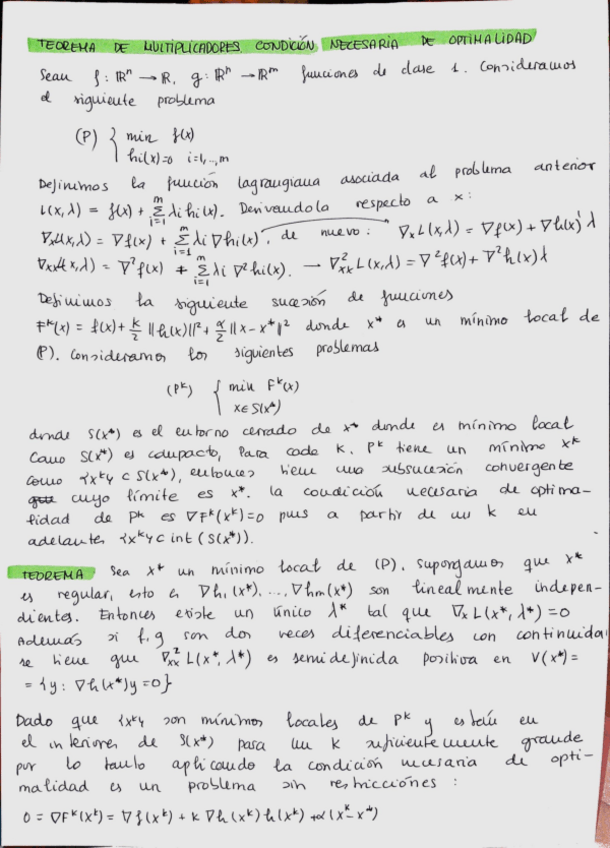 TEOREMA DE MULTIPLICADORES. CONDICIÓN NECESARIA DE OPTIMALIDAD
Sean f: ℝⁿ → ℝ, g: ℝⁿ → ℝᵐ funciones de clase 1. Consideramos
el siguiente problema
(P) { min f(x)
hi(x)=0 i=1,...,m
Definimos la función lagrangiana asociada al problema anterior
L(x,λ) = f(x) + Σᵢ₌₁ᵐ λi hi(x). Derivandola respecto a x:
∇xL(x,λ) = ∇f(x) + Σᵢ₌₁ᵐ λi ∇hi(x), de nuevo: ∇x L(x,λ) = ∇f(x) + ∇h(x)'λ
∇xxL(x,λ) = ∇²f(x) + Σᵢ₌₁ᵐ λi ∇²hi(x). → ∇²xx L(x,λ) = ∇²f(x) + ∇²h(x)λ
Definimos la siguiente sucesión de funciones
Fᵏ(x) = f(x) + k/2 ||h(x)||² + α/2 ||x-x*||² donde x* es un mínimo local de
(P). Consideramos los siguientes problemas
(Pᵏ) { min Fᵏ(x)
x∈S(x*)
donde S(x*) es el entorno cerrado de x* donde es mínimo local
Como S(x*) es compacto, Para cada k, Pᵏ tiene un mínimo xᵏ
como {xᵏ} ⊂ S(x*), entonces tiene una subsucesión convergente
cuyo límite es x*. La condición necesaria de optima-
lidad de Pᵏ es ∇Fᵏ(xᵏ)=0 pues a partir de un k en
adelante, {xᵏ} ⊂ int (S(x*)).
TEOREMA Sea x* un mínimo local de (P). Supongamos que x*
es regular, esto es ∇h₁(x*), ..., ∇hm(x*) son linealmente indepen-
dientes. Entonces existe un único λ* tal que ∇x L(x*, λ*) = 0
Además si f, g son dos veces diferenciables con continuida
se tiene que ∇²xx L(x*, λ*) es semidefinida positiva en V(x*) =
= {y : ∇h(x*)y = 0}
Dado que {xᵏ} son mínimos locales de Pᵏ y están en
el interiores de S(x*) para un k suficientemente grande
por lo tanto aplicando la condición necesaria de opti-
malidad es un problema sin restricciones :
0 = ∇Fᵏ(xᵏ) = ∇f(xᵏ) + k ∇h(xᵏ) h(xᵏ) + α(xᵏ - x*)